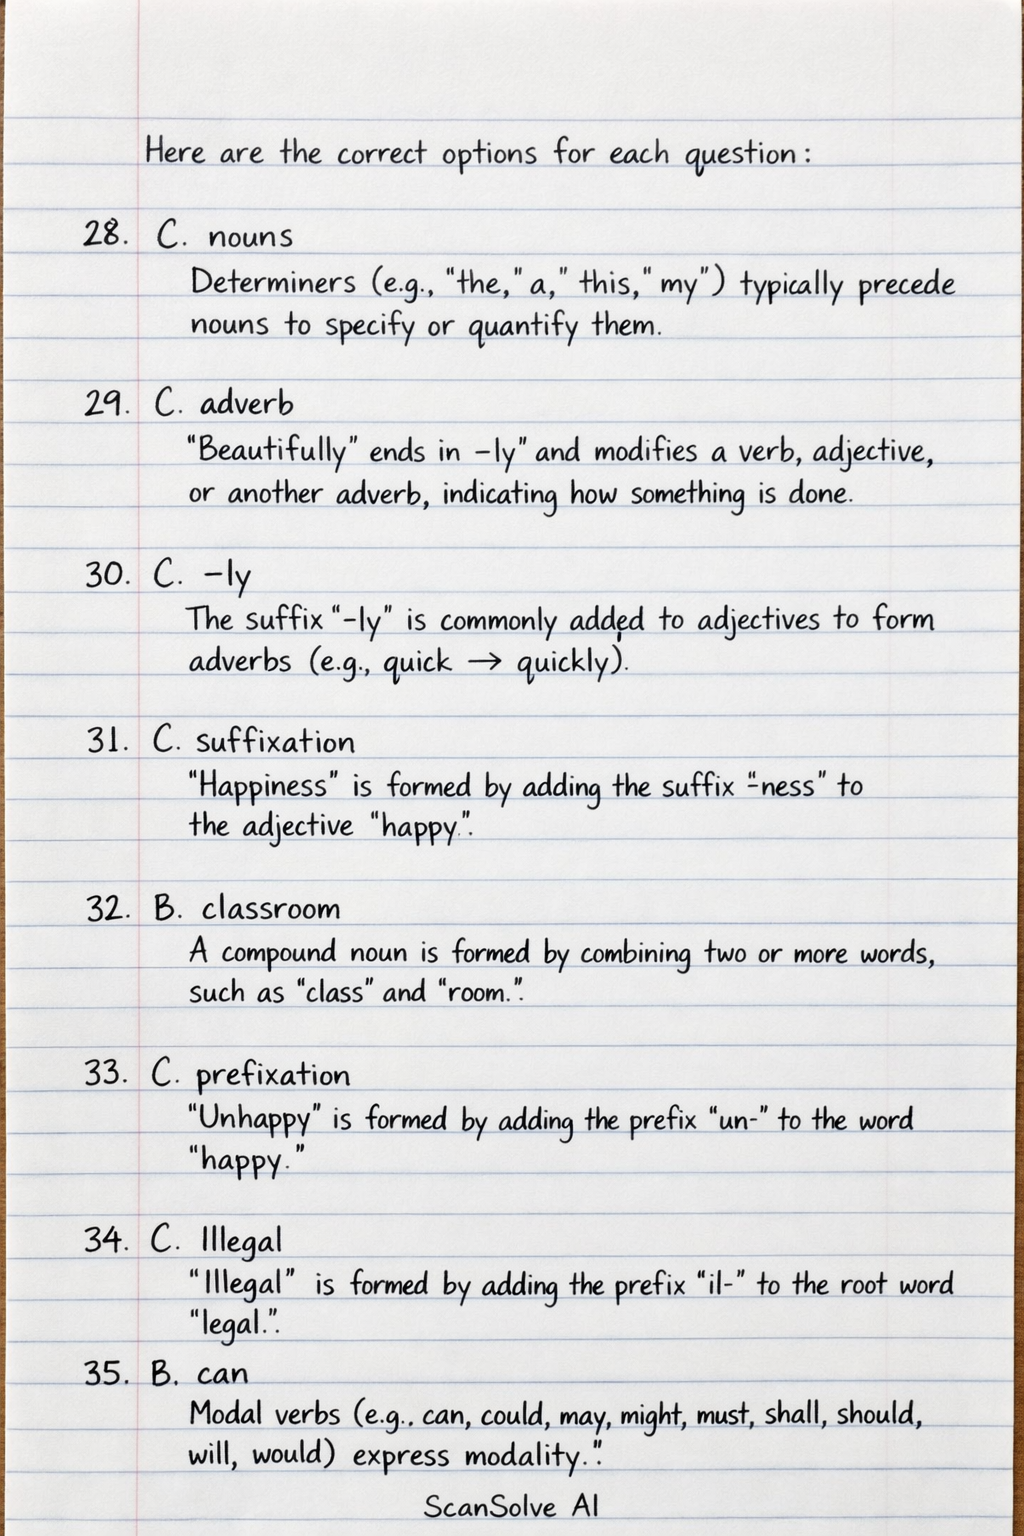 Here are the correct options for each question:
28. C. nouns
Determiners (e.g., "the," a," this," my") typically precede
nouns to specify or quantify them.
29. C. adverb
"Beautifully" ends in -ly" and modifies a verb, adjective,
or another adverb, indicating how something is done.
30. C. -ly
The suffix "-ly" is commonly added to adjectives to form
adverbs (e.g., quick → quickly).
31. C. suffixation
"Happiness" is formed by adding the suffix "-ness" to
the adjective "happy.".
32. B. classroom
A compound noun is formed by combining two or more words,
such as "class" and "room.".
33. C. prefixation
"Unhappy" is formed by adding the prefix "un-" to the word
"happy."
34. C. Illegal
"Illegal" is formed by adding the prefix "il-" to the root word
"legal.".
35. B. can
Modal verbs (e.g., can, could, may, might, must, shall, should,
will, would) express modality.".
ScanSolve AI